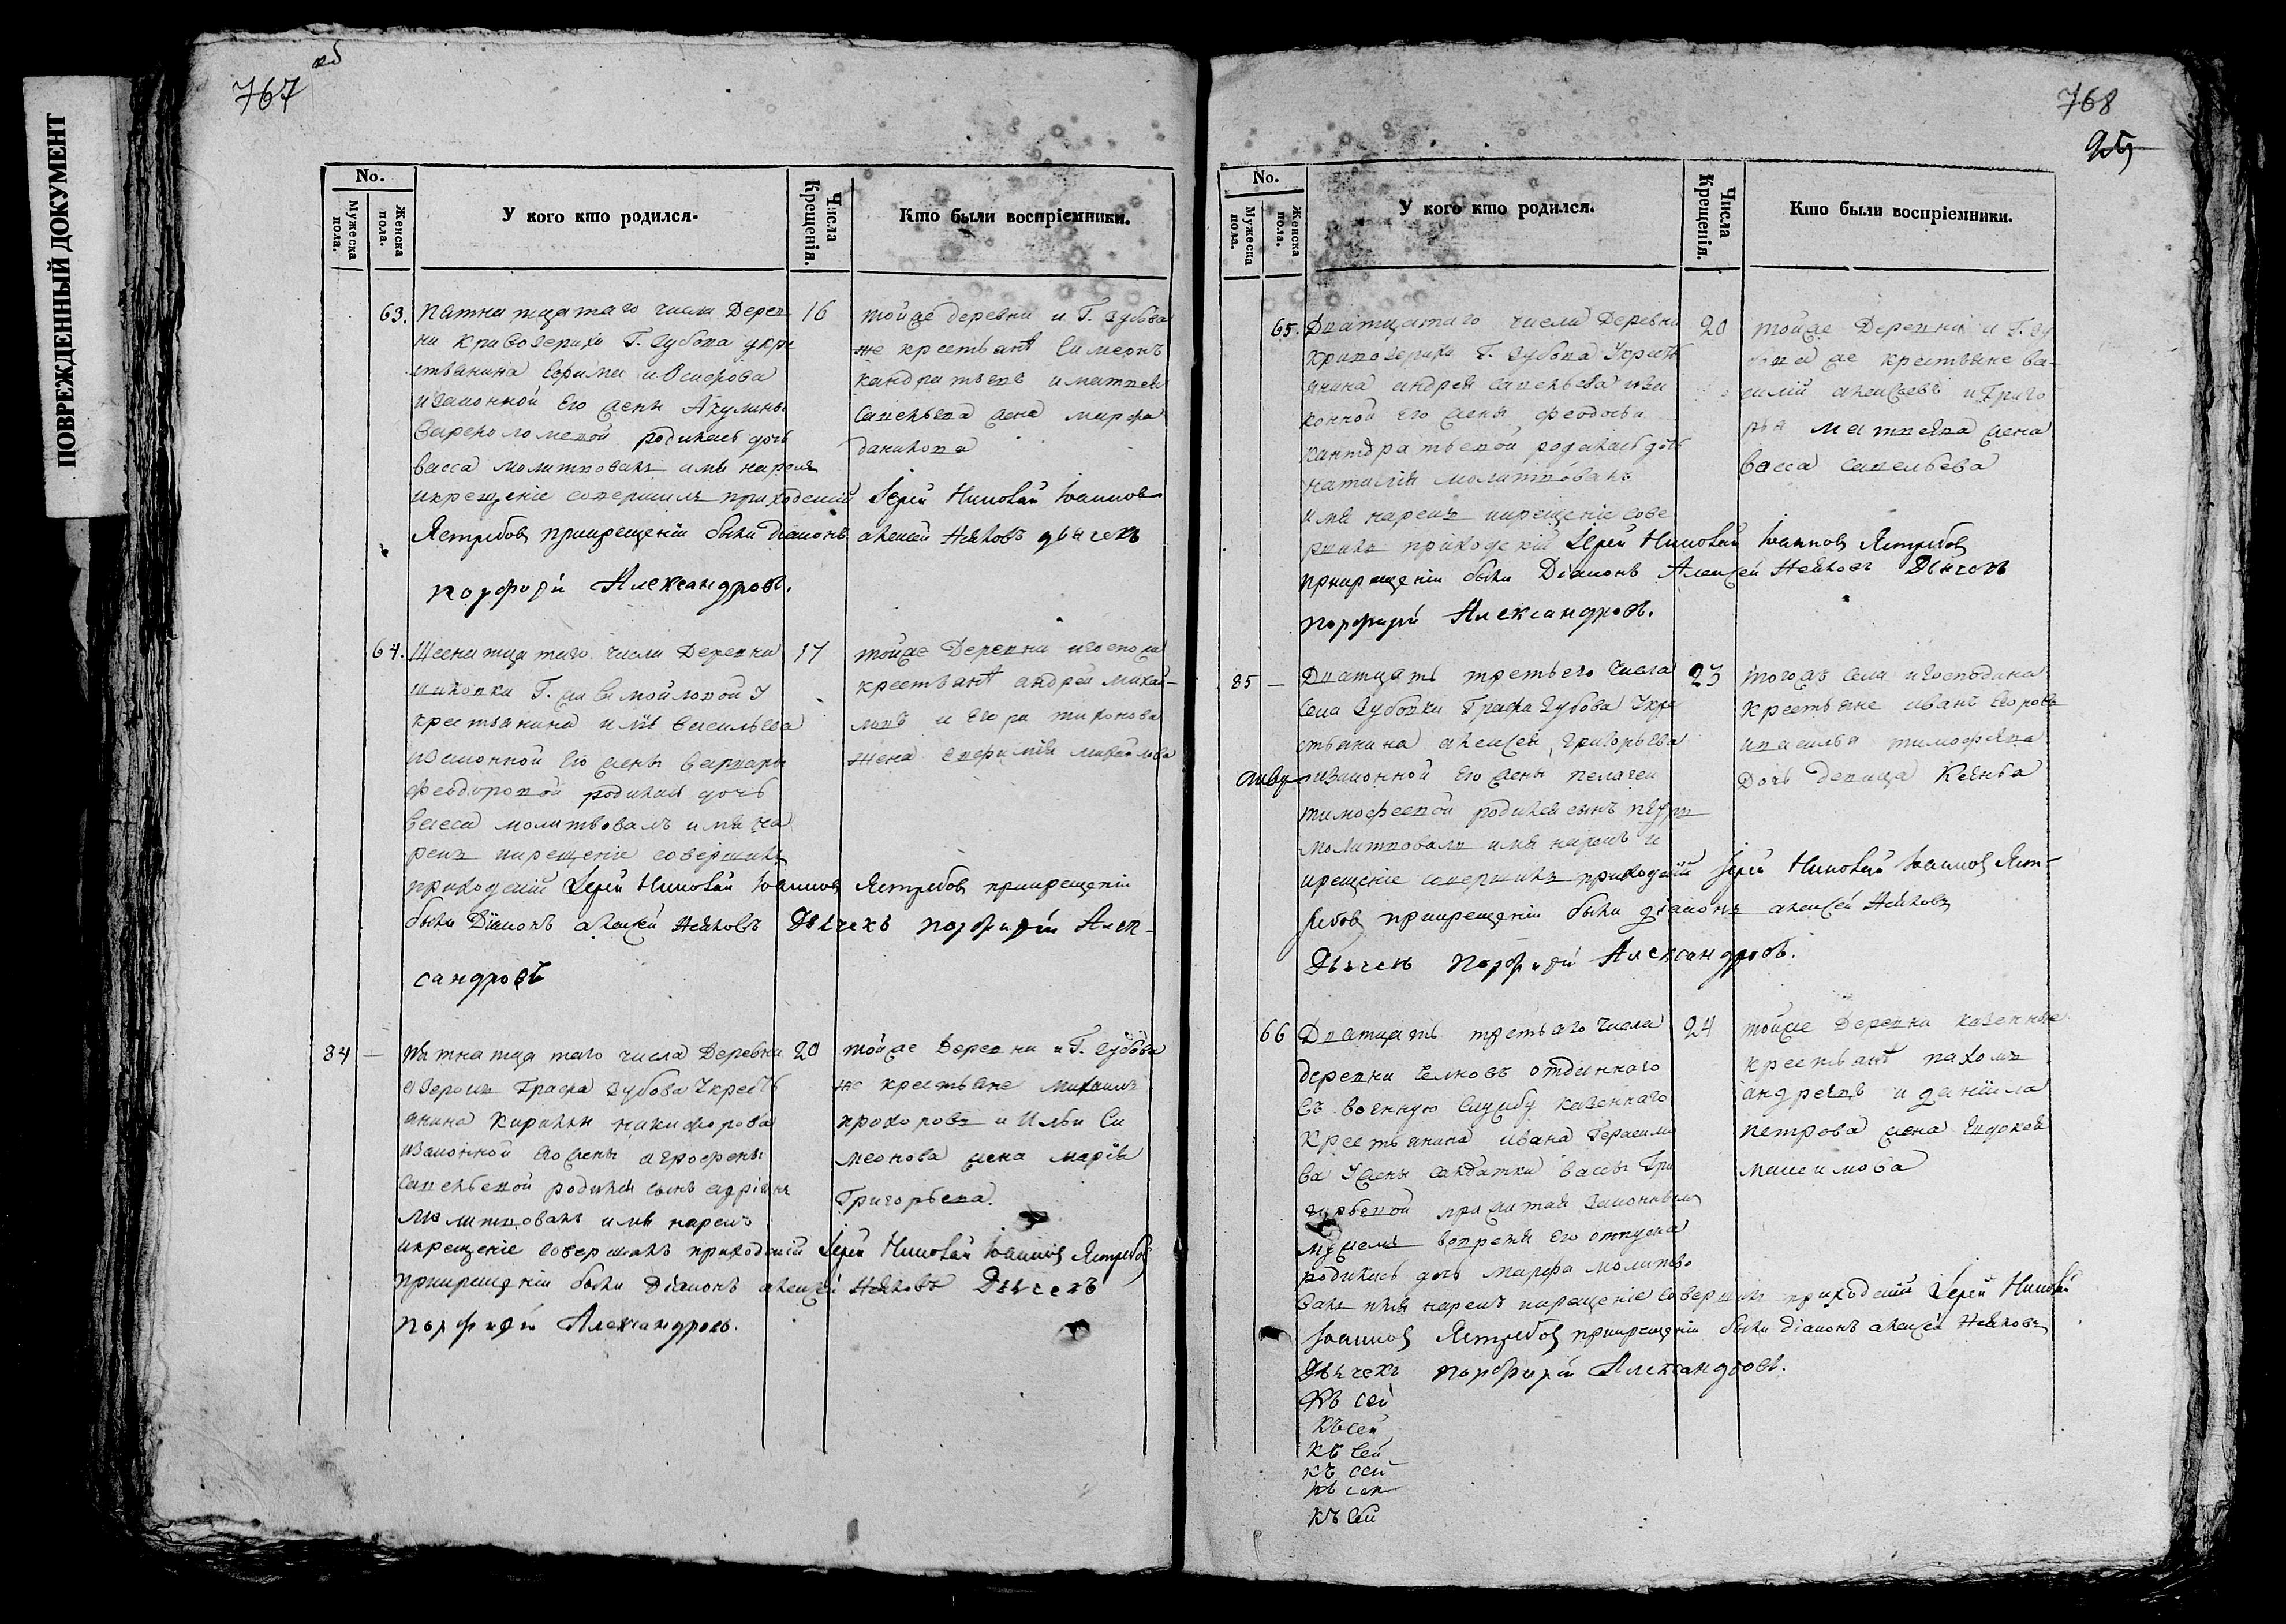 ПОВРЕЖДЕННЫЙ ДОКУМЕНТ
767
No.
Мужеска пола.
Женска пола.
У кого кто родился.
Числа Крещенія.
Кто были воспріемники.
63. Пятнатцатаго числа Дерев 16
ни Кривозерихи Г. Зубова укре
стьянина Ефима
изаконной Его жены Акулины
родилась дочь
васса молитвовалъ имя нарекъ
икрещеніе совершилъ приходскій Іерей Николай Іоанновъ
Ястребовъ прикрещеніи были діаконъ алексей дьячекъ
порфирій Александровъ.
тойже деревни и Г. Зубова
же крестьянѣ Симеонъ
кандратьевъ иматвея
савельева жена марфа
данилова
64. Шеснатцатаго числа Деревни 17
Г. у
крестьянина васильева
изаконной Его жены варвары
феодоровой родилась дочь
васса молитвовалъ имя на
рекъ икрещеніе совершилъ
приходскій Іерей Николай Іоанновъ Ястребовъ прикрещеніи
были Діаконъ алексей Дьячекъ порфирій Алек-
сандровъ
тойже Деревни игоспожи
крестьянѣ андрей михай-
ловъ и Егора тихонова
жена Евфимія михайлова
84 — Пятнатцатаго числа Деревни 20
Графа Зубова Укресть
янина Кирилы никифорова
изаконной Его жены агрофены
савельевой родился сынъ
молитвовалъ имя нарекъ
икрещеніе совершилъ приходскій Іерей Николай Іоанновъ Ястребовъ
прикрещеніи были Діаконъ алексей Дьячекъ
порфирій Александровъ.
тойже Деревни и Г. Зубова
же крестьяне Михаилъ
прохоровъ и Ильи Си
меонова жена марія
Григорьева.
768
No.
Мужеска пола.
Женска пола.
У кого кто родился.
Числа Крещенія.
Кто были воспріемники.
65. Дватцатаго числа Деревни 20
Кривозерихи Г. Зубова Укресть
янина андрея савельева иза
конной Его жены феодосьи
кантдратьевой родилась дочь
наталія молитвовалъ
имя нарекъ икрещеніе сове
ршилъ приходскій Іерей Николай Іоанновъ Ястребовъ
прикрещеніи были Діаконъ Алексей Дьячекъ
порфирій Александровъ.
тойже Деревни и Г. Зу
бова же крестьяне ва-
силій алексеевъ и Григо
рья матвеева жена
васса савельева
85 — Дватцать третьего Числа 23
села Зубовки Графа Зубова Укре
стьянина алексея Григорьева
изаконной Его жены пелагеи
тимофеевой родился сынъ
молитвовалъ имя нарекъ и
крещеніе совершилъ приходскій Іерей Николай Іоанновъ Яст-
ребовъ прикрещеніи были діаконъ алексей
Дьячекъ порфирій Александровъ.
тогожъ села игосподина
крестьяне иванъ Егоровъ
ивасилья тимофеева
Дочь девица Ксенья
66 Дватцать третьяго Числа 24
деревни отданнаго
въ военную Службу казеннаго
крестьянина ивана Герасимо
ва Жены салдатки вассы Гри
горьевой
мужемъ вовремя Его отпуска
родилась дочь марфа молитво
валъ имя нарекъ икрещеніе совершилъ приходскій Іерей Николай
Іоанновъ Ястребовъ прикрещеніи были діаконъ алексей
Дьячекъ порфирій Александровъ.
тойже Деревни казенные
крестьянѣ пахомъ
андреевъ и данiила
петрова жена Евдокея
Къ сей
Къ сей
Къ сей
Къ сей
Къ сей
Къ сей